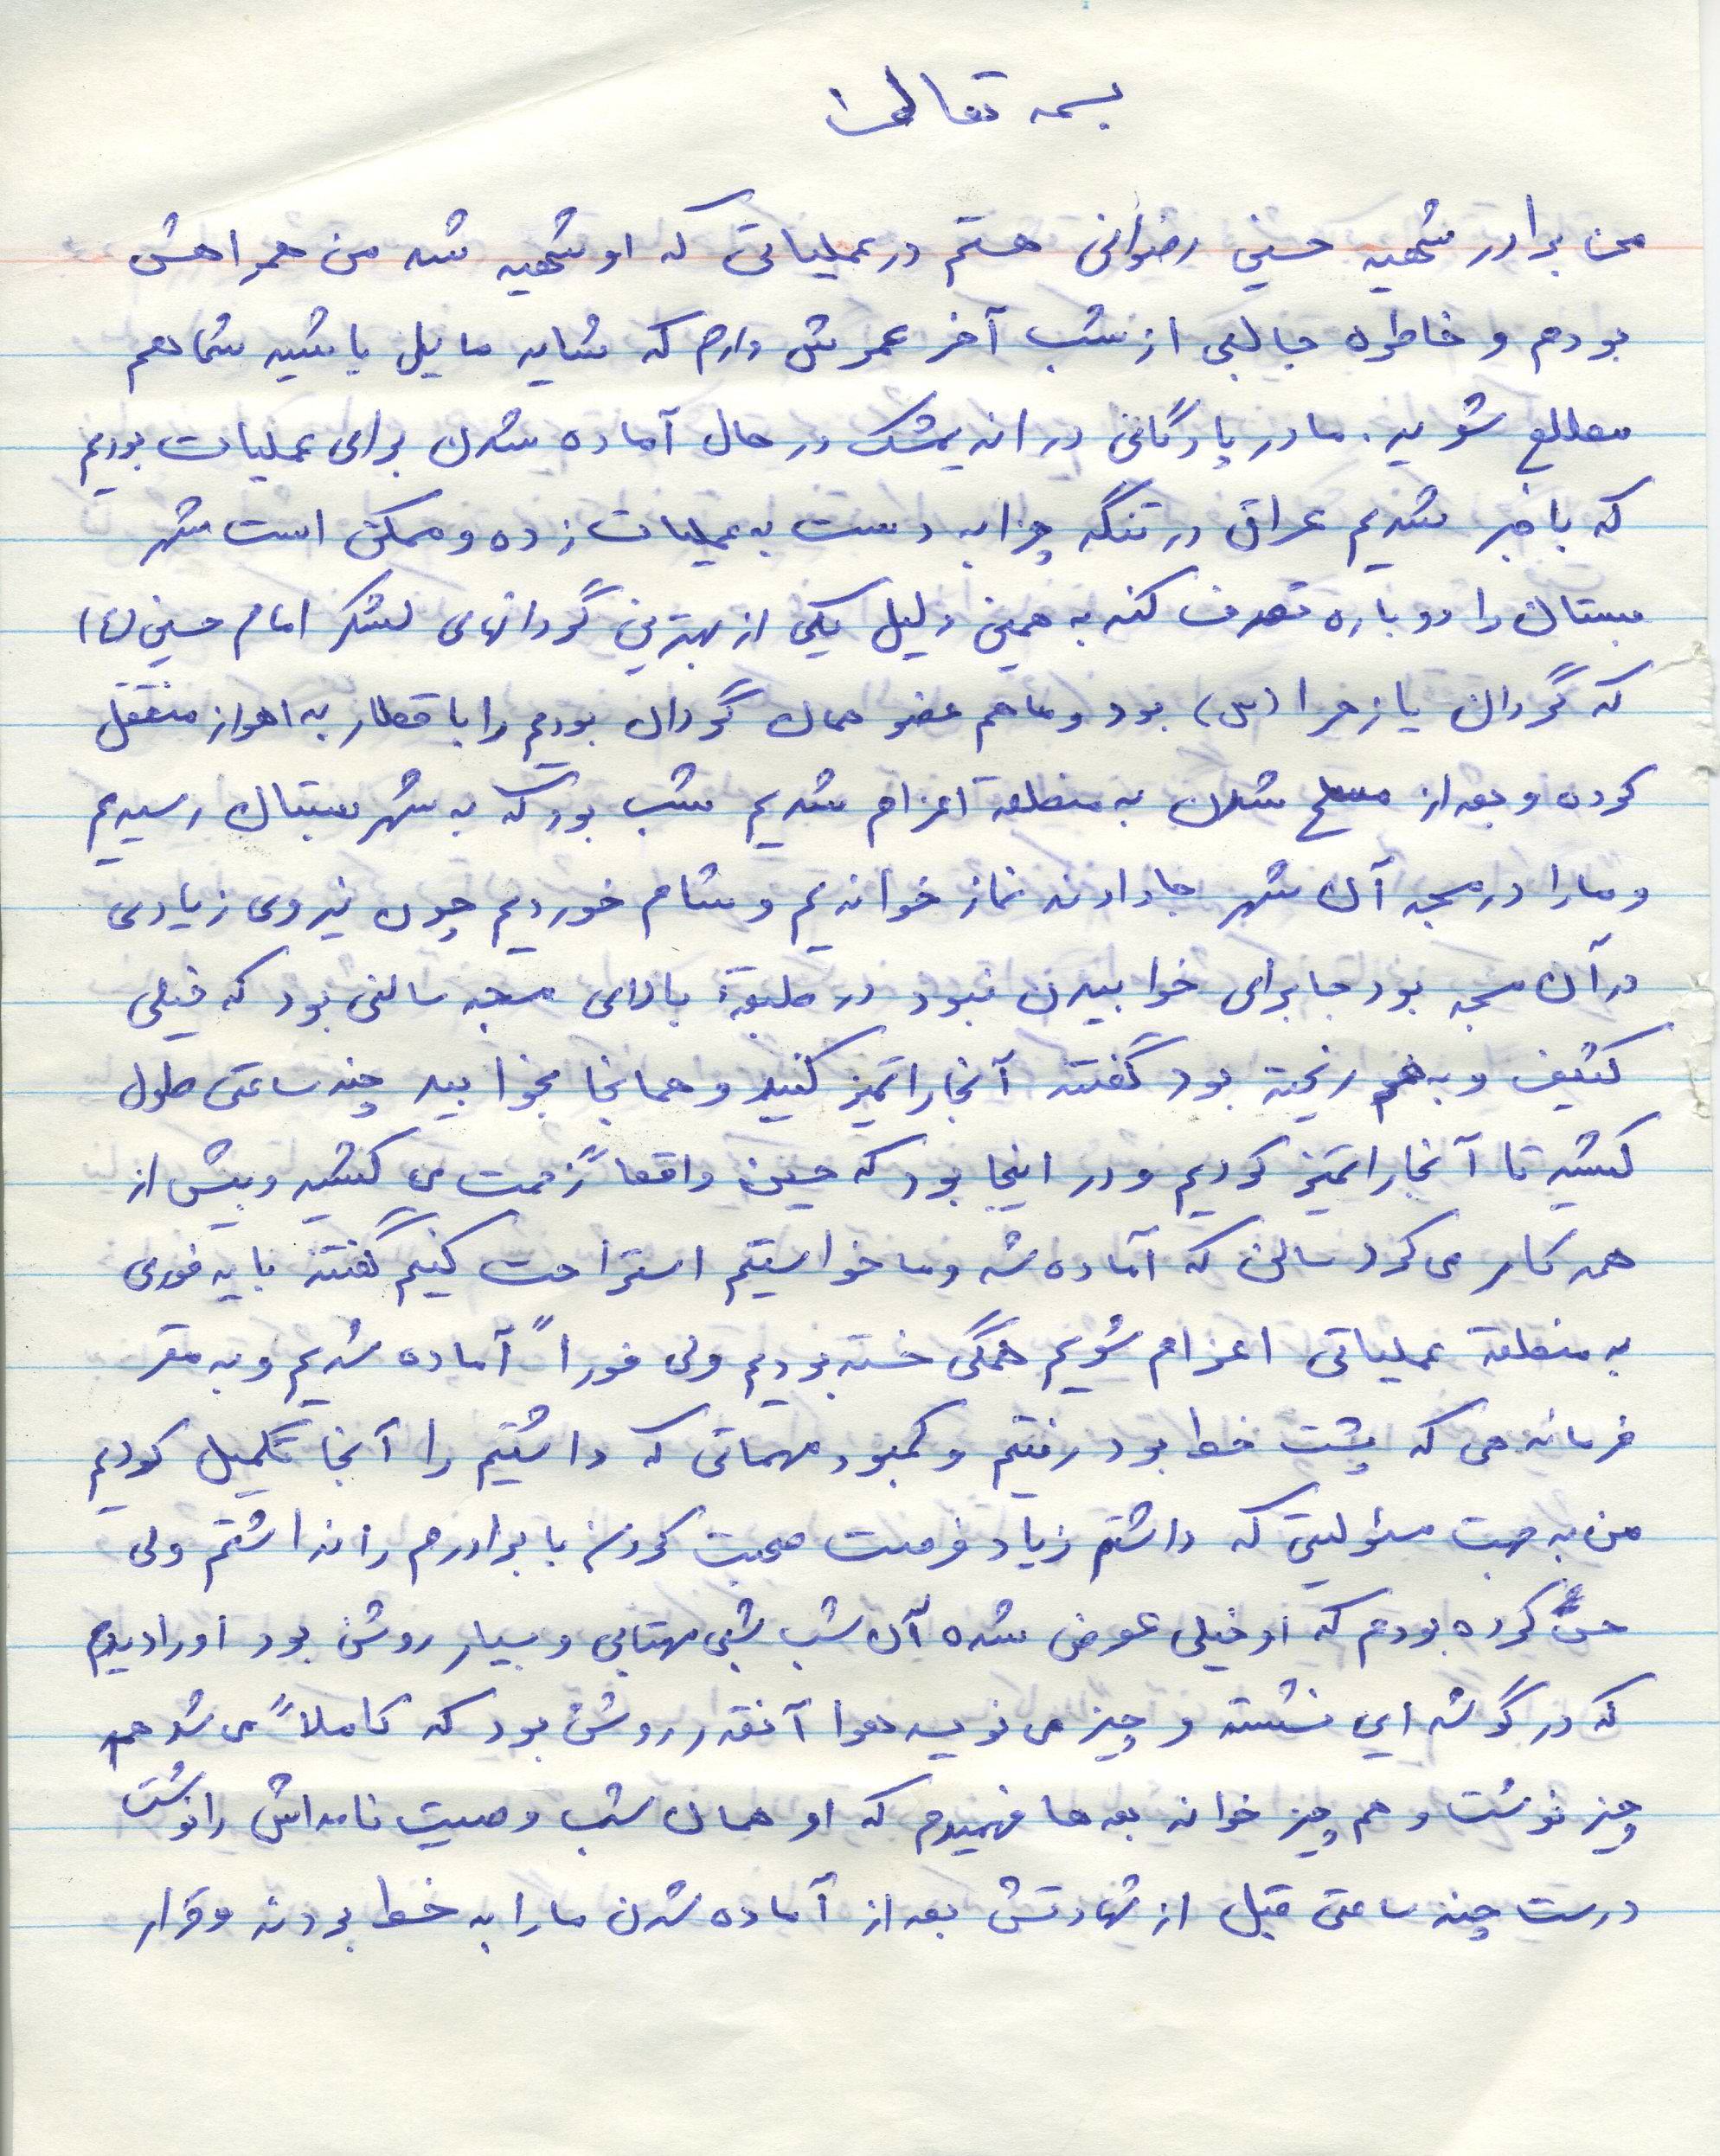 بسمه تعالی
من برادر شهید حسین رضوانی هستم در عملیاتی که او شهید شد من همراهش
بودم و خاطره جالبی از شب آخر عمرش دارم که شاید مایل باشید شما هم
مطلع شوید. ما در پادگانی در اندیمشک در حال آماده شدن برای عملیات بودیم
که با خبر شدیم عراق در تنگه چزابه دست به عملیات زده و ممکن است شهر
بستان را دوباره تصرف کند به همین دلیل یکی از بهترین گردانهای لشکر امام حسین (ع)
که گردان یا زهرا (س) بود و ما هم عضو همان گردان بودیم را با قطار به اهواز منتقل
کرده و بعد از مسلح شدن به منطقه اعزام شدیم شب بود که به شهر بستان رسیدیم
و ما را در مسجد آن شهر جا دادند نماز خواندیم و شام خوردیم چون نیروی زیادی
در آن مسجد بود جا برای خوابیدن نبود در طبقهٔ بالای مسجد سالنی بود که خیلی
کثیف و به هم ریخته بود گفتند آنجا را تمیز کنید و همانجا بخوابید چند ساعتی طول
کشید تا آنجا را تمیز کردیم و در اینجا بود که حسین واقعاً زحمت می کشید و بیش از
همه کار می کرد سالن که آماده شد و ما خواستیم استراحت کنیم گفتند باید فوری
به منطقه عملیاتی اعزام شویم همگی خسته بودیم ولی فوراً آماده شدیم و به مقر
فرماندهی که پشت خط بود رفتیم و کمبود مهماتی که داشتیم را آنجا تکمیل کردیم
من به جهت مسئولیتی که داشتم زیاد فرصت صحبت کردن با برادرم را نداشتم ولی
حس کرده بودم که او خیلی عوض شده آن شب شبی مهتابی و بسیار روشن بود او را دیدم
که در گوشه ای نشسته و چیز می نویسد هوا آنقدر روشن بود که کاملاً می شد هم
چیز نوشت و هم چیز خواند بعدها فهمیدم که او همان شب وصیت نامه اش را نوشت
درست چند ساعتی قبل از شهادتش بعد از آماده شدن ما را به خط بردند و قرار